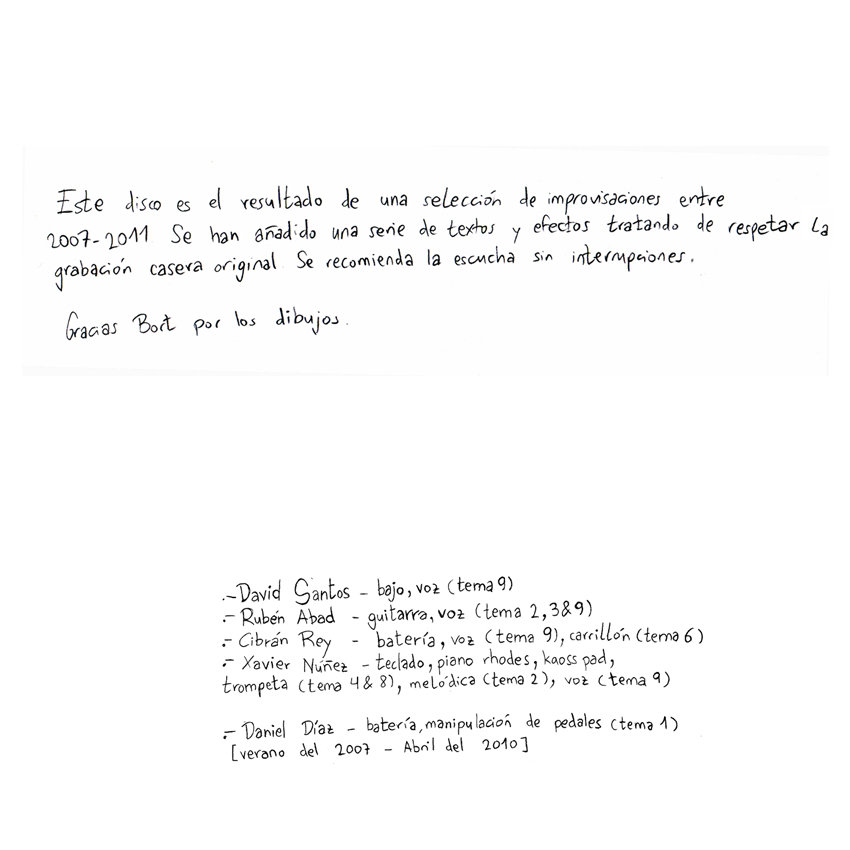 Este disco es el resultado de una selección de improvisaciones entre
2007-2011 Se han añadido una serie de textos y efectos tratando de respetar la
grabación casera original. Se recomienda la escucha sin interrupciones.
Gracias Bort por los dibujos.
.- David Santos - bajo, voz (tema 9)
.- Rubén Abad - guitarra, voz (tema 2, 3 & 9)
.- Cibrán Rey - batería, voz (tema 9), carrillón (tema 6)
.- Xavier Núñez - teclado, piano rhodes, kaoss pad,
trompeta (tema 4 & 8), melódica (tema 2), voz (tema 9)
.- Daniel Díaz - batería, manipulación de pedales (tema 1)
[verano del 2007 - Abril del 2010]